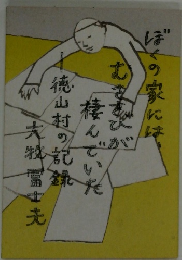 ぼくの家には、
むささびが
棲んでいた
―徳山村の記録
大牧冨士夫